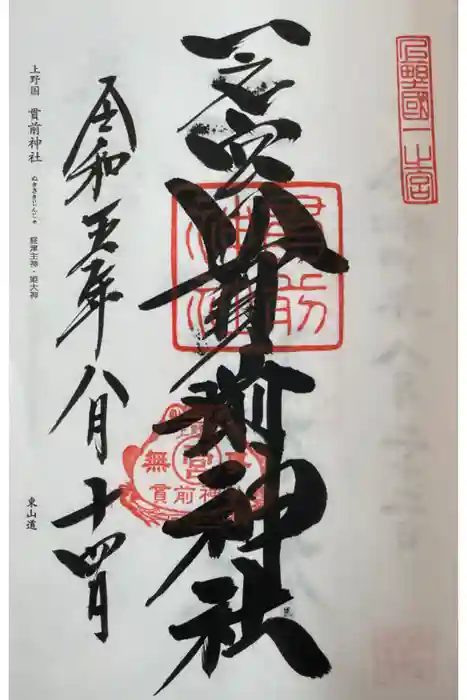 上野國一之宮
一之宮貫前神社
貫前神社
無
宮
貫前神社
令和五年八月十四日
上野国 貫前神社 ぬきさきじんじゃ 経津主神・姫大神
東山道